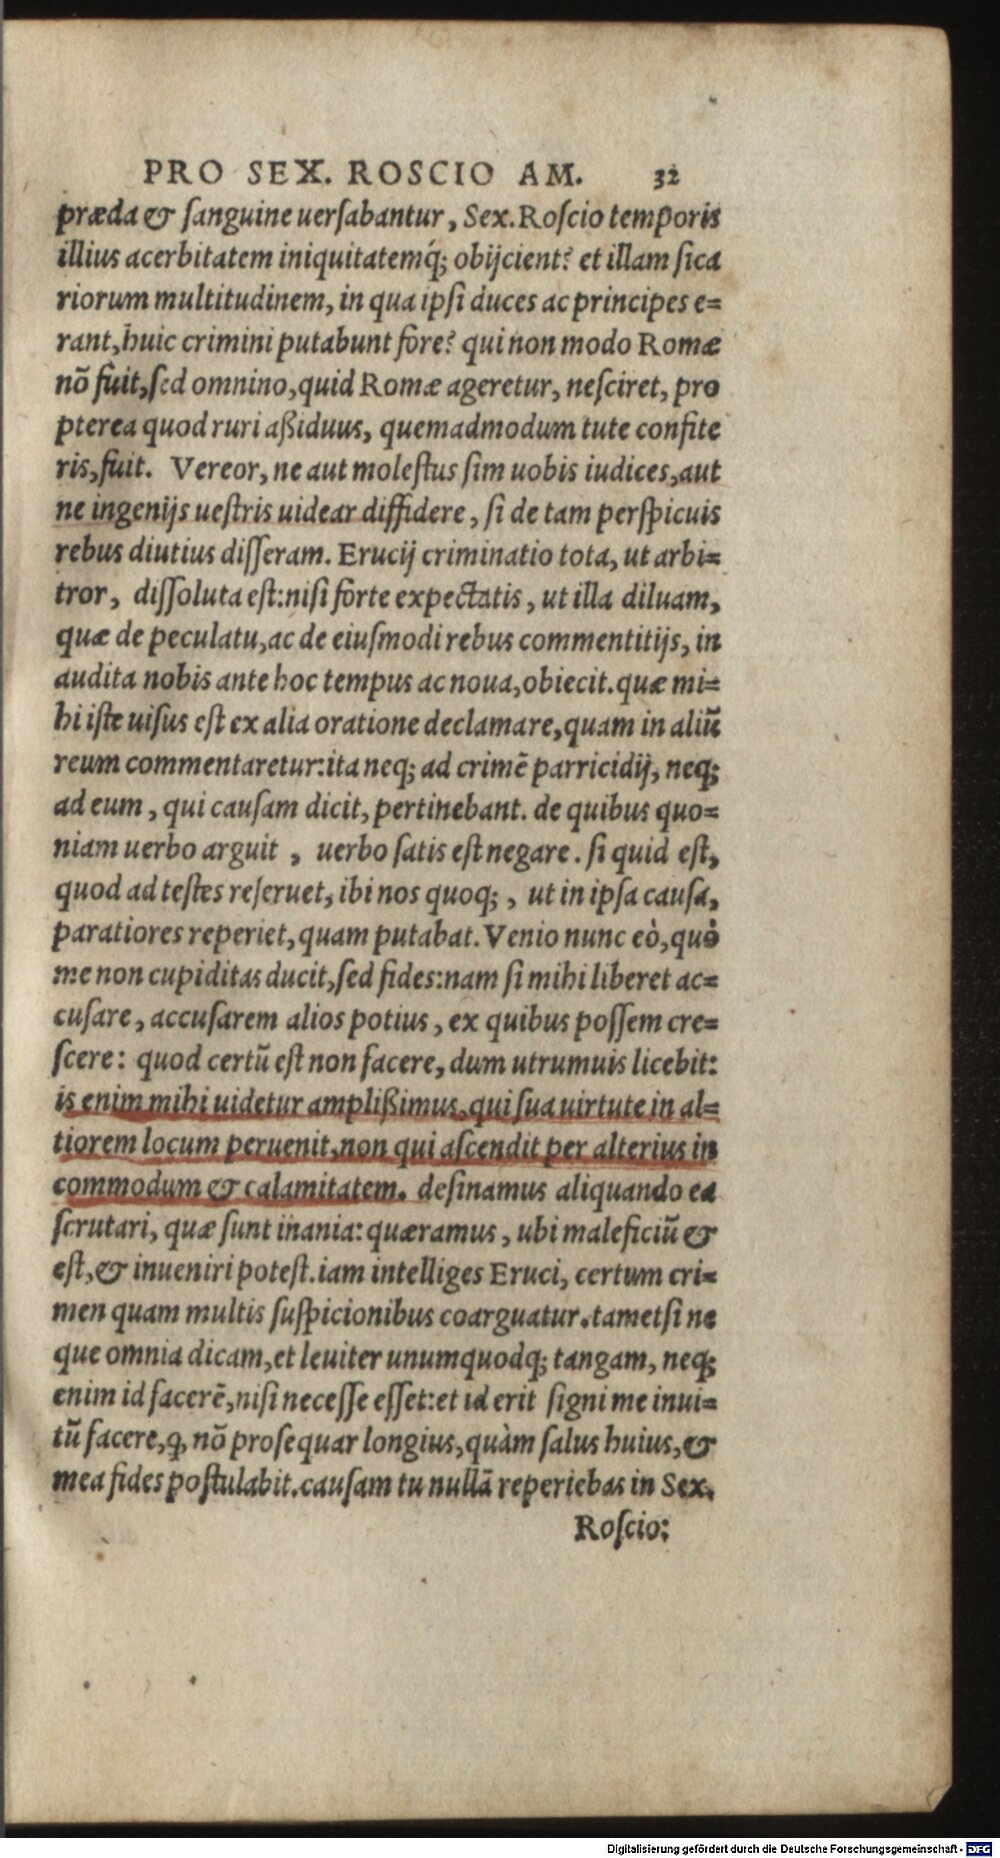 PRO SEX. ROSCIO AM. 32
præda & ſanguine uerſabantur, Sex. Roſcio temporis
illius acerbitatem iniquitatemq́; obijcient? et illam ſica
riorum multitudinem, in qua ipſi duces ac principes e=
rant, huic crimini putabunt fore? qui non modo Romæ
nō fuit, ſed omnino, quid Romæ ageretur, neſciret, pro
pterea quod ruri aßiduus, quemadmodum tute confite
ris, fuit. Vereor, ne aut moleſtus ſim uobis iudices, aut
ne ingenijs ueſtris uidear diffidere, ſi de tam perſpicuis
rebus diutius diſſeram. Erucij criminatio tota, ut arbi=
tror, diſſoluta eſt: niſi forte expectatis, ut illa diluam,
quæ de peculatu, ac de eiuſmodi rebus commentitijs, in
audita nobis ante hoc tempus ac noua, obiecit. quæ mi=
hi iſte uiſus eſt ex alia oratione declamare, quam in aliū
reum commentaretur: ita neq; ad crimē parricidij, neq;
ad eum, qui cauſam dicit, pertinebant. de quibus quo=
niam uerbo arguit, uerbo ſatis eſt negare. ſi quid eſt,
quod ad teſtes reſeruet, ibi nos quoq;, ut in ipſa cauſa,
paratiores reperiet, quam putabat. Venio nunc eò, quò
me non cupiditas ducit, ſed fides: nam ſi mihi liberet ac=
cuſare, accuſarem alios potius, ex quibus poſſem cre=
ſcere: quod certū eſt non facere, dum utrumuis licebit:
is enim mihi uidetur amplißimus, qui ſua uirtute in al=
tiorem locum peruenit, non qui aſcendit per alterius in
commodum & calamitatem. deſinamus aliquando ea
ſcrutari, quæ ſunt inania: quæramus, ubi maleficiū &
eſt, & inueniri poteſt. iam intelliges Eruci, certum cri=
men quam multis ſuſpicionibus coarguatur. tametſi ne
que omnia dicam, et leuiter unumquodq; tangam, neq;
enim id facerē, niſi neceſſe eſſet: et id erit ſigni me inui=
tū facere, ꝙ nō proſequar longius, quàm ſalus huius, &
mea fides poſtulabit. cauſam tu nullā reperiebas in Sex.
Roſcio:
Digitalisierung gefördert durch die Deutsche Forschungsgemeinschaft - DFG